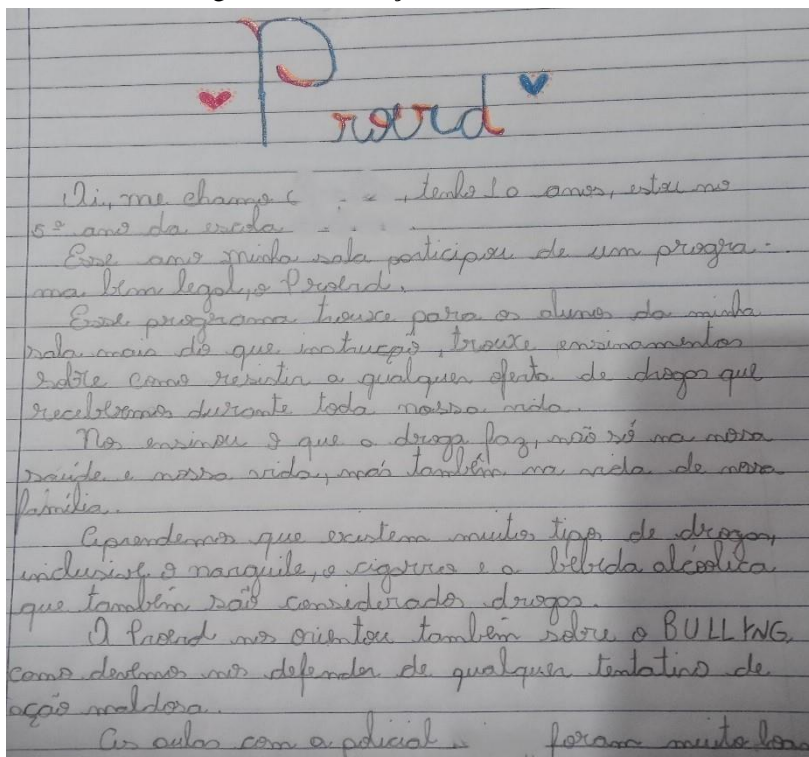 Proerd
Oi, me chamo C , tenho 10 anos, estou no
5º ano da escola
Esse ano minha sala participou de um progra-
ma bem legal, o Proerd.
Esse programa trouxe para os alunos da minha
sala mais do que instrução, trouxe ensinamentos
sobre como resistir a qualquer oferta de drogas que
recebermos durante toda nossa vida.
Nos ensinou o que a droga faz, não só na nossa
saúde e nossa vida, mas também na vida de nossa
família.
Aprendemos que existem muitos tipos de drogas,
inclusive o narguile, o cigarro e a bebida alcoólica
que também são considerados drogas.
O Proerd nos orientou também sobre o BULLYNG,
como devemos nos defender de qualquer tentativa de
ação maldosa.
As aulas com a policial foram muito boas